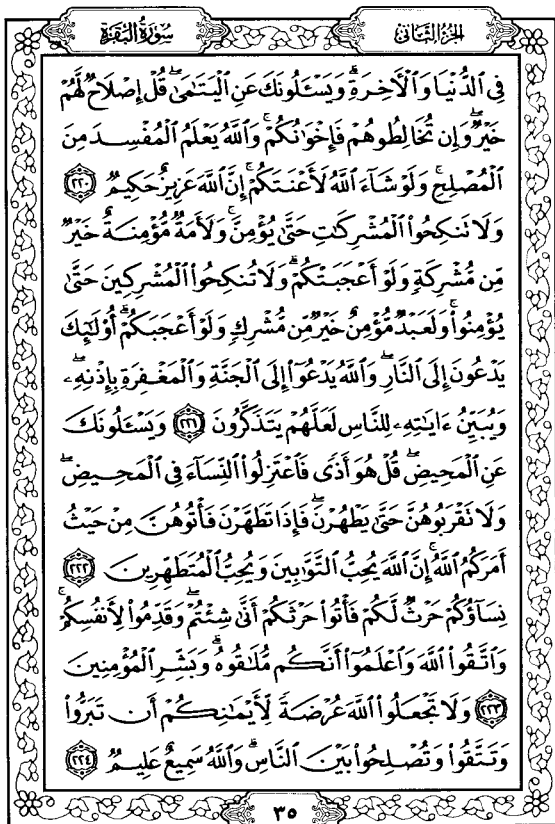 سُورَةُ البَقَرَةِ
الجُزْءُ الثَّانِي
فِي ٱلدُّنْيَا وَٱلْأَخِرَةِۗ وَيَسْـَٔلُونَكَ عَنِ ٱلْيَتَٰمَىٰۖ قُلْ إِصْلَاحٌ لَّهُمْ
خَيْرٌۖ وَإِن تُخَالِطُوهُمْ فَإِخْوَٰنُكُمْۚ وَٱللَّهُ يَعْلَمُ ٱلْمُفْسِدَ مِنَ
ٱلْمُصْلِحِۚ وَلَوْ شَآءَ ٱللَّهُ لَأَعْنَتَكُمْۚ إِنَّ ٱللَّهَ عَزِيزٌ حَكِيمٌ ٢٢٠
وَلَا تَنكِحُوا۟ ٱلْمُشْرِكَٰتِ حَتَّىٰ يُؤْمِنَّۚ وَلَأَمَةٌ مُّؤْمِنَةٌ خَيْرٌ
مِّن مُّشْرِكَةٍ وَلَوْ أَعْجَبَتْكُمْۗ وَلَا تُنكِحُوا۟ ٱلْمُشْرِكِينَ حَتَّىٰ
يُؤْمِنُوا۟ۚ وَلَعَبْدٌ مُّؤْمِنٌ خَيْرٌ مِّن مُّشْرِكٍ وَلَوْ أَعْجَبَكُمْۗ أُو۟لَٰٓئِكَ
يَدْعُونَ إِلَى ٱلنَّارِۖ وَٱللَّهُ يَدْعُوٓا۟ إِلَى ٱلْجَنَّةِ وَٱلْمَغْفِرَةِ بِإِذْنِهِۦۖ
وَيُبَيِّنُ ءَايَٰتِهِۦ لِلنَّاسِ لَعَلَّهُمْ يَتَذَكَّرُونَ ٢٢١ وَيَسْـَٔلُونَكَ
عَنِ ٱلْمَحِيضِۖ قُلْ هُوَ أَذًى فَٱعْتَزِلُوا۟ ٱلنِّسَآءَ فِي ٱلْمَحِيضِۖ
وَلَا تَقْرَبُوهُنَّ حَتَّىٰ يَطْهُرْنَۖ فَإِذَا تَطَهَّرْنَ فَأْتُوهُنَّ مِنْ حَيْثُ
أَمَرَكُمُ ٱللَّهُۚ إِنَّ ٱللَّهَ يُحِبُّ ٱلتَّوَّٰبِينَ وَيُحِبُّ ٱلْمُتَطَهِّرِينَ ٢٢٢
نِسَآؤُكُمْ حَرْثٌ لَّكُمْ فَأْتُوا۟ حَرْثَكُمْ أَنَّىٰ شِئْتُمْۖ وَقَدِّمُوا۟ لِأَنفُسِكُمْۚ
وَٱتَّقُوا۟ ٱللَّهَ وَٱعْلَمُوٓا۟ أَنَّكُم مُّلَٰقُوهُۗ وَبَشِّرِ ٱلْمُؤْمِنِينَ
٢٢٣ وَلَا تَجْعَلُوا۟ ٱللَّهَ عُرْضَةً لِّأَيْمَٰنِكُمْ أَن تَبَرُّوا۟
وَتَتَّقُوا۟ وَتُصْلِحُوا۟ بَيْنَ ٱلنَّاسِۗ وَٱللَّهُ سَمِيعٌ عَلِيمٌ ٢٢٤
٣٥